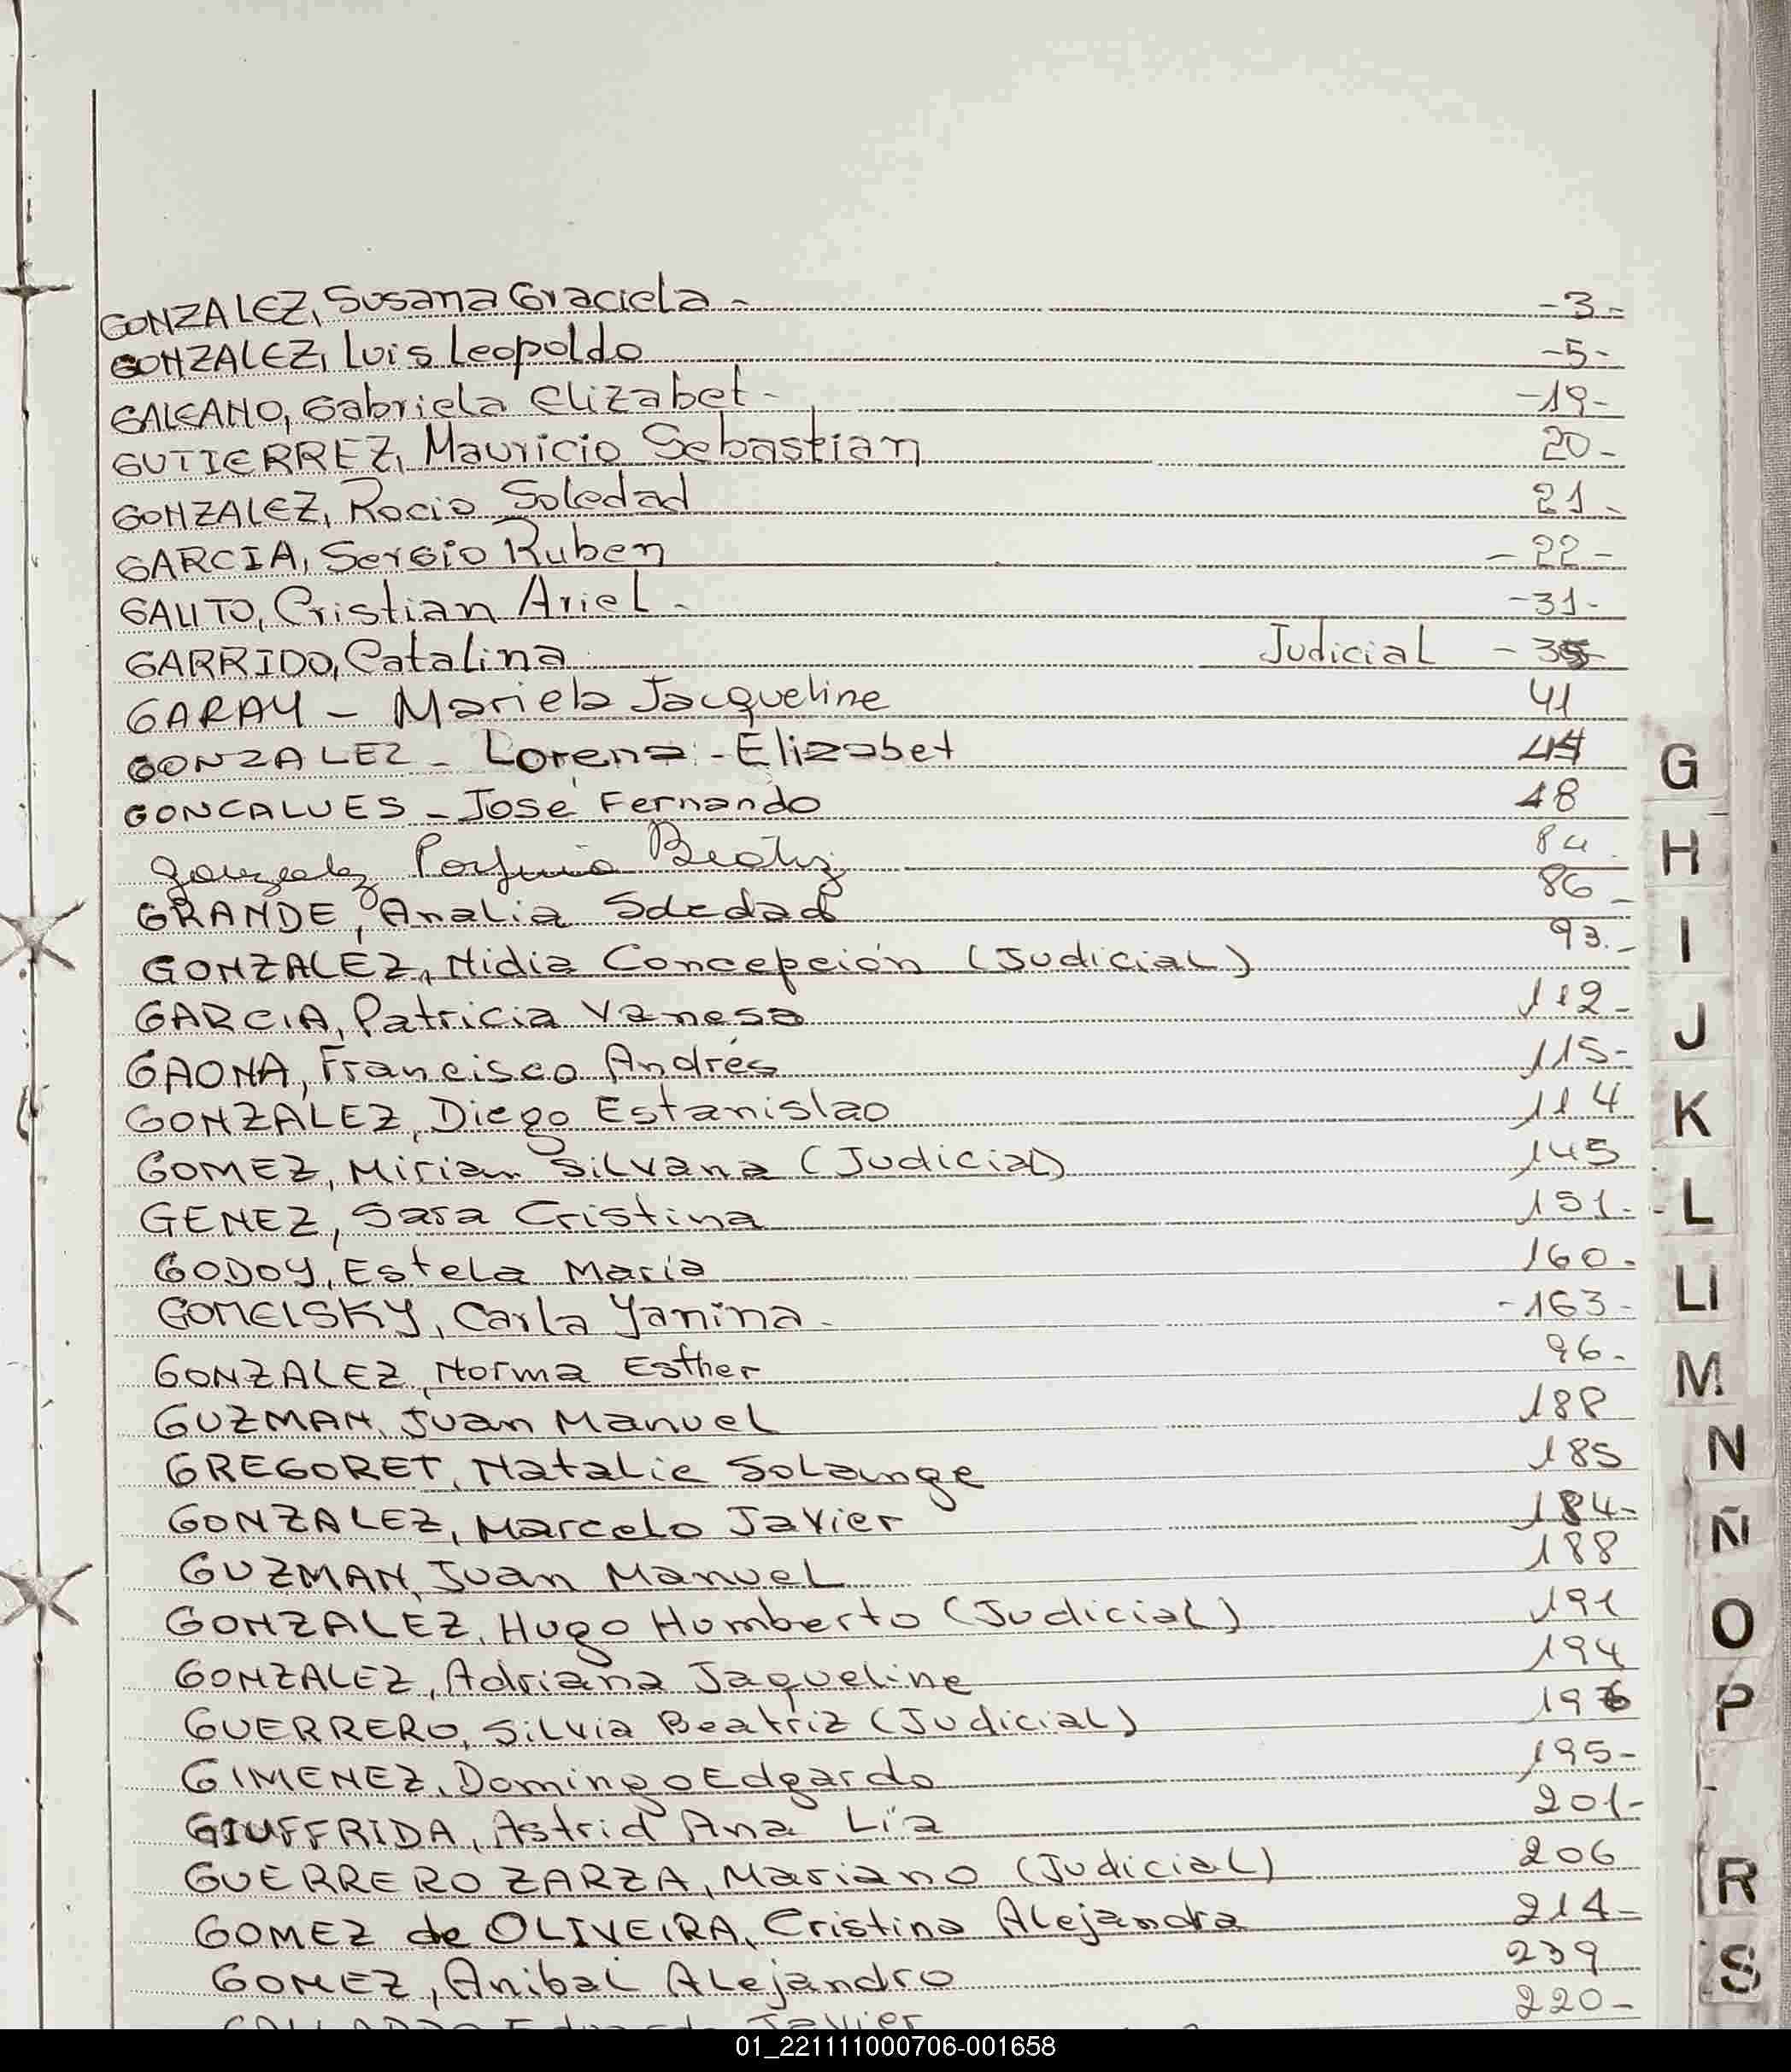 GONZALEZ, Susana Graciela - -3-
GONZALEZ, Luis Leopoldo -5-
GALEANO, Gabriela Elizabet - -19-
GUTIERREZ, Mauricio Sebastian 20-
GONZALEZ, Rocio Soledad 21-
GARCIA, Sergio Ruben -22-
GALITO, Cristian Ariel - -31-
GARRIDO, Catalina Judicial -35-
GARAY - Mariela Jacqueline 41
GONZALEZ - Lorena - Elizabet
GONCALVES - José Fernando 48
Gonzalez Beatriz 84
GRANDE, Analia Soledad 86-
GONZALEZ, Nidia Concepción (Judicial) 93.-
GARCIA, Patricia Vanesa 112-
GAONA, Francisco Andrés 115-
GONZALEZ, Diego Estanislao 114
GOMEZ, Mirian Silvana (Judicial) 145
GENEZ, Sara Cristina 151.-
GODOY, Estela Maria 160.
GOMELSKY, Carla Yanina - -163-
GONZALEZ, Norma Esther 96.
GUZMAN, Juan Manuel 188
GREGORET, Natalie Solange 185
GONZALEZ, Marcelo Javier 184-
GUZMAN, Juan Manuel 188
GONZALEZ, Hugo Humberto (Judicial) 191
GONZALEZ, Adriana Jaqueline 194
GUERRERO, Silvia Beatriz (Judicial) 196
GIMENEZ, Domingo Edgardo 195-
GIUFFRIDA, Astrid Ana Lía 201-
GUERRERO ZARZA, Mariano (Judicial) 206
GOMEZ de OLIVEIRA, Cristina Alejandra 214-
GOMEZ, Anibal Alejandro 239
Javier 220-
G
H
I
J
K
L
Ll
M
N
Ñ
O
P
R
S
01_221111000706-001658